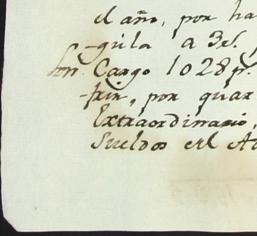 el año, por ha
-gula a 3 rs.
Cargo 1028 p.
por quar
Extraordinario,
Sueldos del A